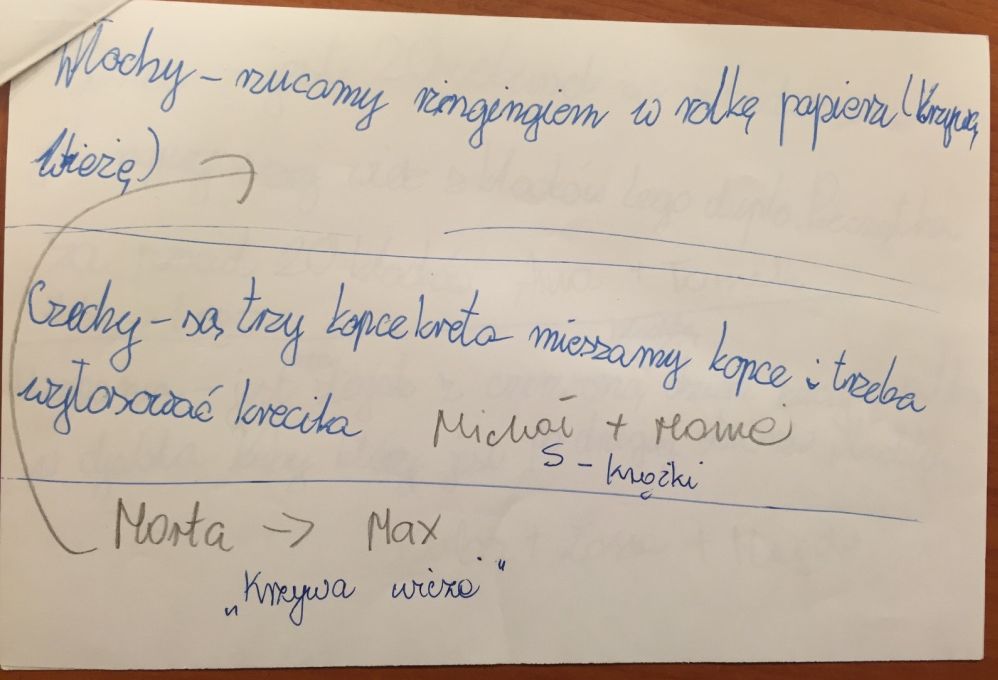 Włochy - rzucamy ringingiem w rolkę papieru (Krzywą
Wieżę)
Czechy - są trzy kopce kreta mieszamy kopce i trzeba
wylosować krecika
Michał +
S - krążki
Marta -> Max
„Krzywa wieża"